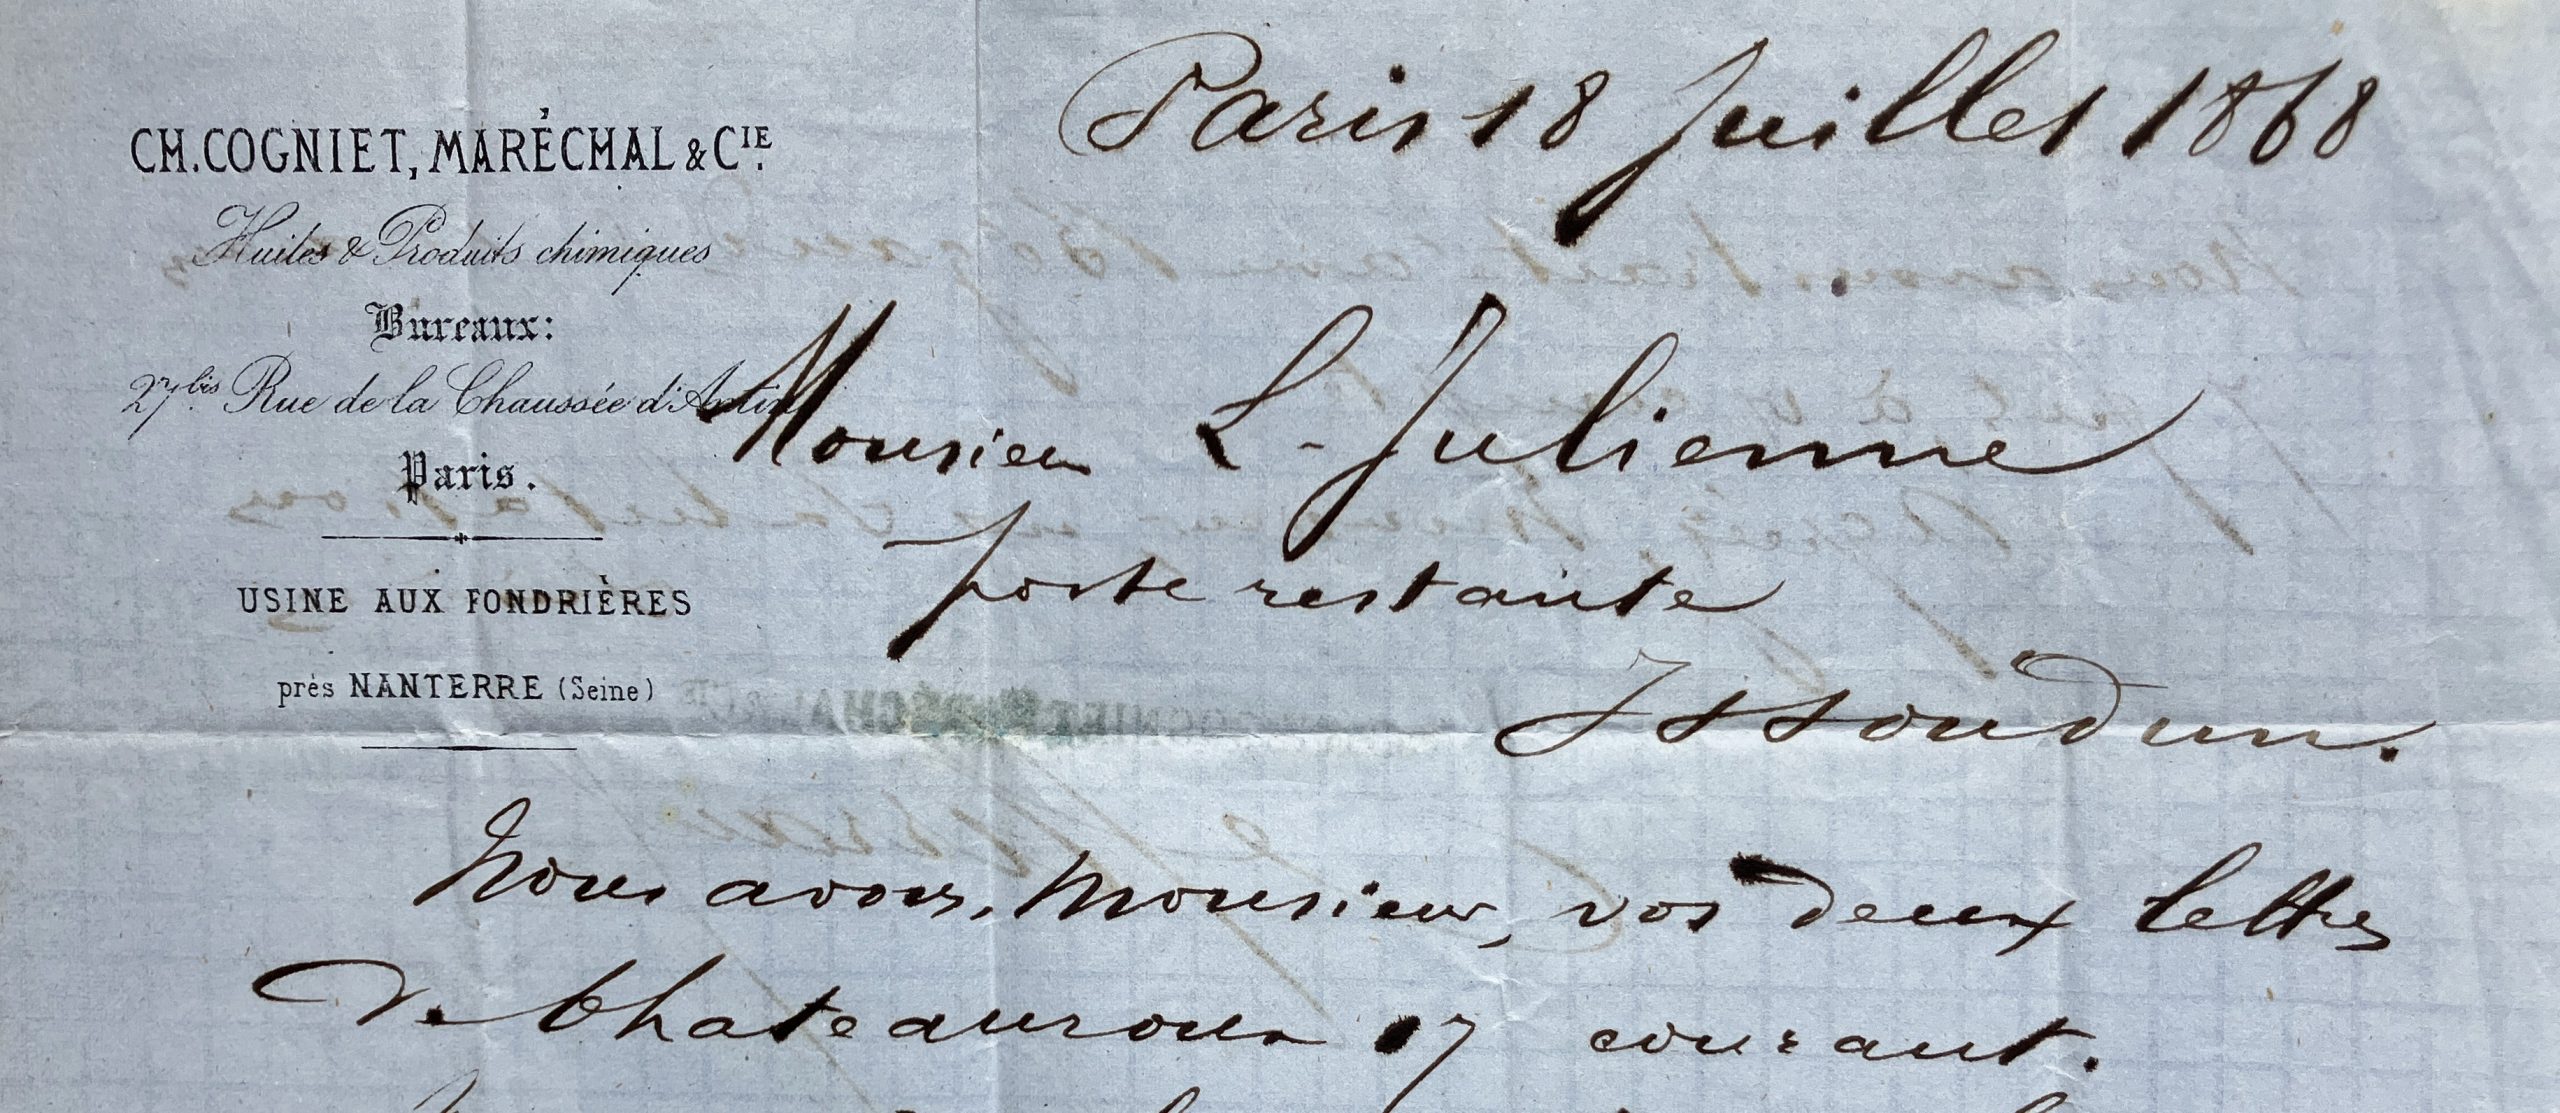 CH. COGNIET, MARÉCHAL & CIE.
Huiles & Produits chimiques
Bureaux:
27 bis Rue de la Chaussée d'Antin
Paris.
USINE AUX FONDRIÈRES
près NANTERRE (Seine)
Paris 18 Juillet 1868
Monsieur L. Julienne
poste restante
Issoudun.
Nous avons, Monsieur, vos deux lettres
de Chateauroux 17 courant.